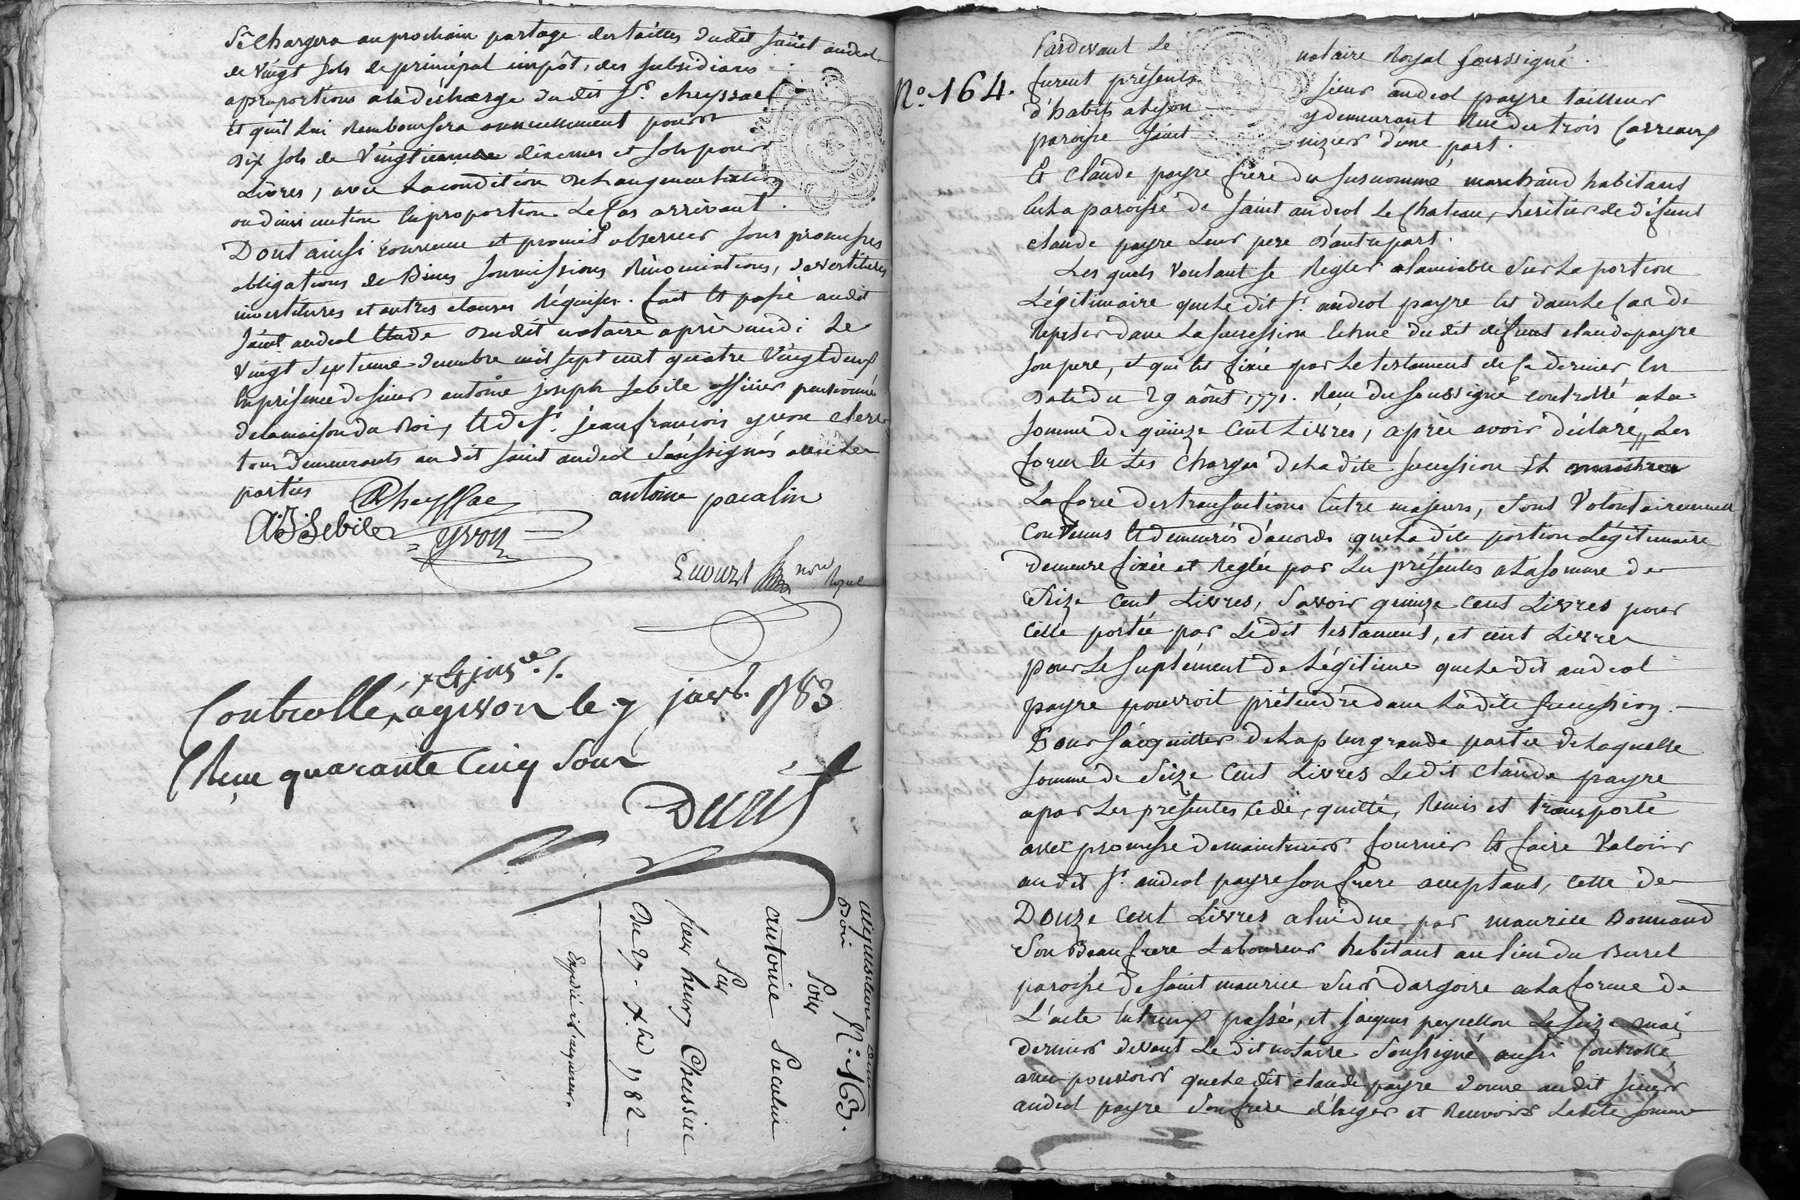 Se Chargera au prochain partage des tailles dudit saint andeol
de vingt sols de principal impôt, des subsidiares
a proportions a la décharge dudit Sr. cheyssac
Et qu'il lui Remboursera annuellement pour
dix sols de Vingtieme dixemes et sols pour
Livres, avec la condition de
ou diminution En proportion Le Cas arrivant.
Dont ainsi convenu et promis observer sous promesses
obligations de Biens soumissions Rénonciations, devestitures
investitures et autres clauses réquises. fait Et passé audit
saint andeol Etude dudit notaire après midi Le
vingt septieme decembre mil sept cent quatre Vingt deux
En présence de sieur antoine joseph sebile officier pensionné
de la maison du Roi, Et de Sr. jean francois yvon clerc
tous demeurants au dit saint andeol soussignés avec les
parties
Cheyssac
antoine pacalin
AJ Sebile
yvon
nore Royal
Controllé, a givors le 9 janv. 1783
Reçu quarante Cinq sous
Duris
No. 163.
Pour
antoine Pacalin
Par
sieur henry Cheissac
Du 27 Xbre 1782
No. 164.
Pardevant Le notaire Royal soussigné.
furent présents sieur andeol payre tailleur
d'habits a Lyon y demeurant Rue du trois Carreaux
paroisse saint nizier d'une part.
Et Claude payre frere du susnommé marchand habitant
En La paroisse de saint andeol Le Chateau, heritier de défunt
claude payre Leur pere d'autre part.
Les quels voulant se Regler a lamiable sur La portion
Légitimaire que Le dit Sr. andeol payre Est dans Le Cas de
repeter dans La succession Entiere du dit défunt claude payre
son pere, et qui Est fixée par Le testament de ce dernier En
date du 29 aôut 1771. Reçu du soussigné controllé a La
somme de quinze Cent Livres, après avoir déclaré Les
forces Et Les Charges de La dite succession Et
La force des transactions Entre majeurs, sont Volontairement
Convenus Et demeurés d'acords que La dite portion Légitimaire
demeure fixée et Reglée par Les présentes a La somme de
seize Cent Livres, savoir quinze Cent Livres pour
Celle portée par Ledit testament, et cent Livres
pour Le suplément de Légitime que Le dit andeol
payre pourroit prétendre dans Ladite succession.
Pour s'acquitter de La plus grande partie de Laquelle
somme de seize Cent Livres Ledit Claude payre
a par Les présentes cedé, quitté, Remis et transporté
avec promesse de maintenir fournir Et faire Valoir
audit Sr. andeol payre son frere acceptant, Cette de
Douze Cent Livres a lui due par maurice Bonnand
son Beaufrere Laboureur habitant au lieu du Burel
paroisse de saint maurice sur dargoire a La forme de
L'acte entr'eux passé, et jacques peysellon Le seize mai
dernier devant Le dit notaire soussigné aussi Controllé
avec pouvoir que Le dit claude payre donne au dit sieur
andeol payre son frere d'Exiger et Recevoir Ladite somme